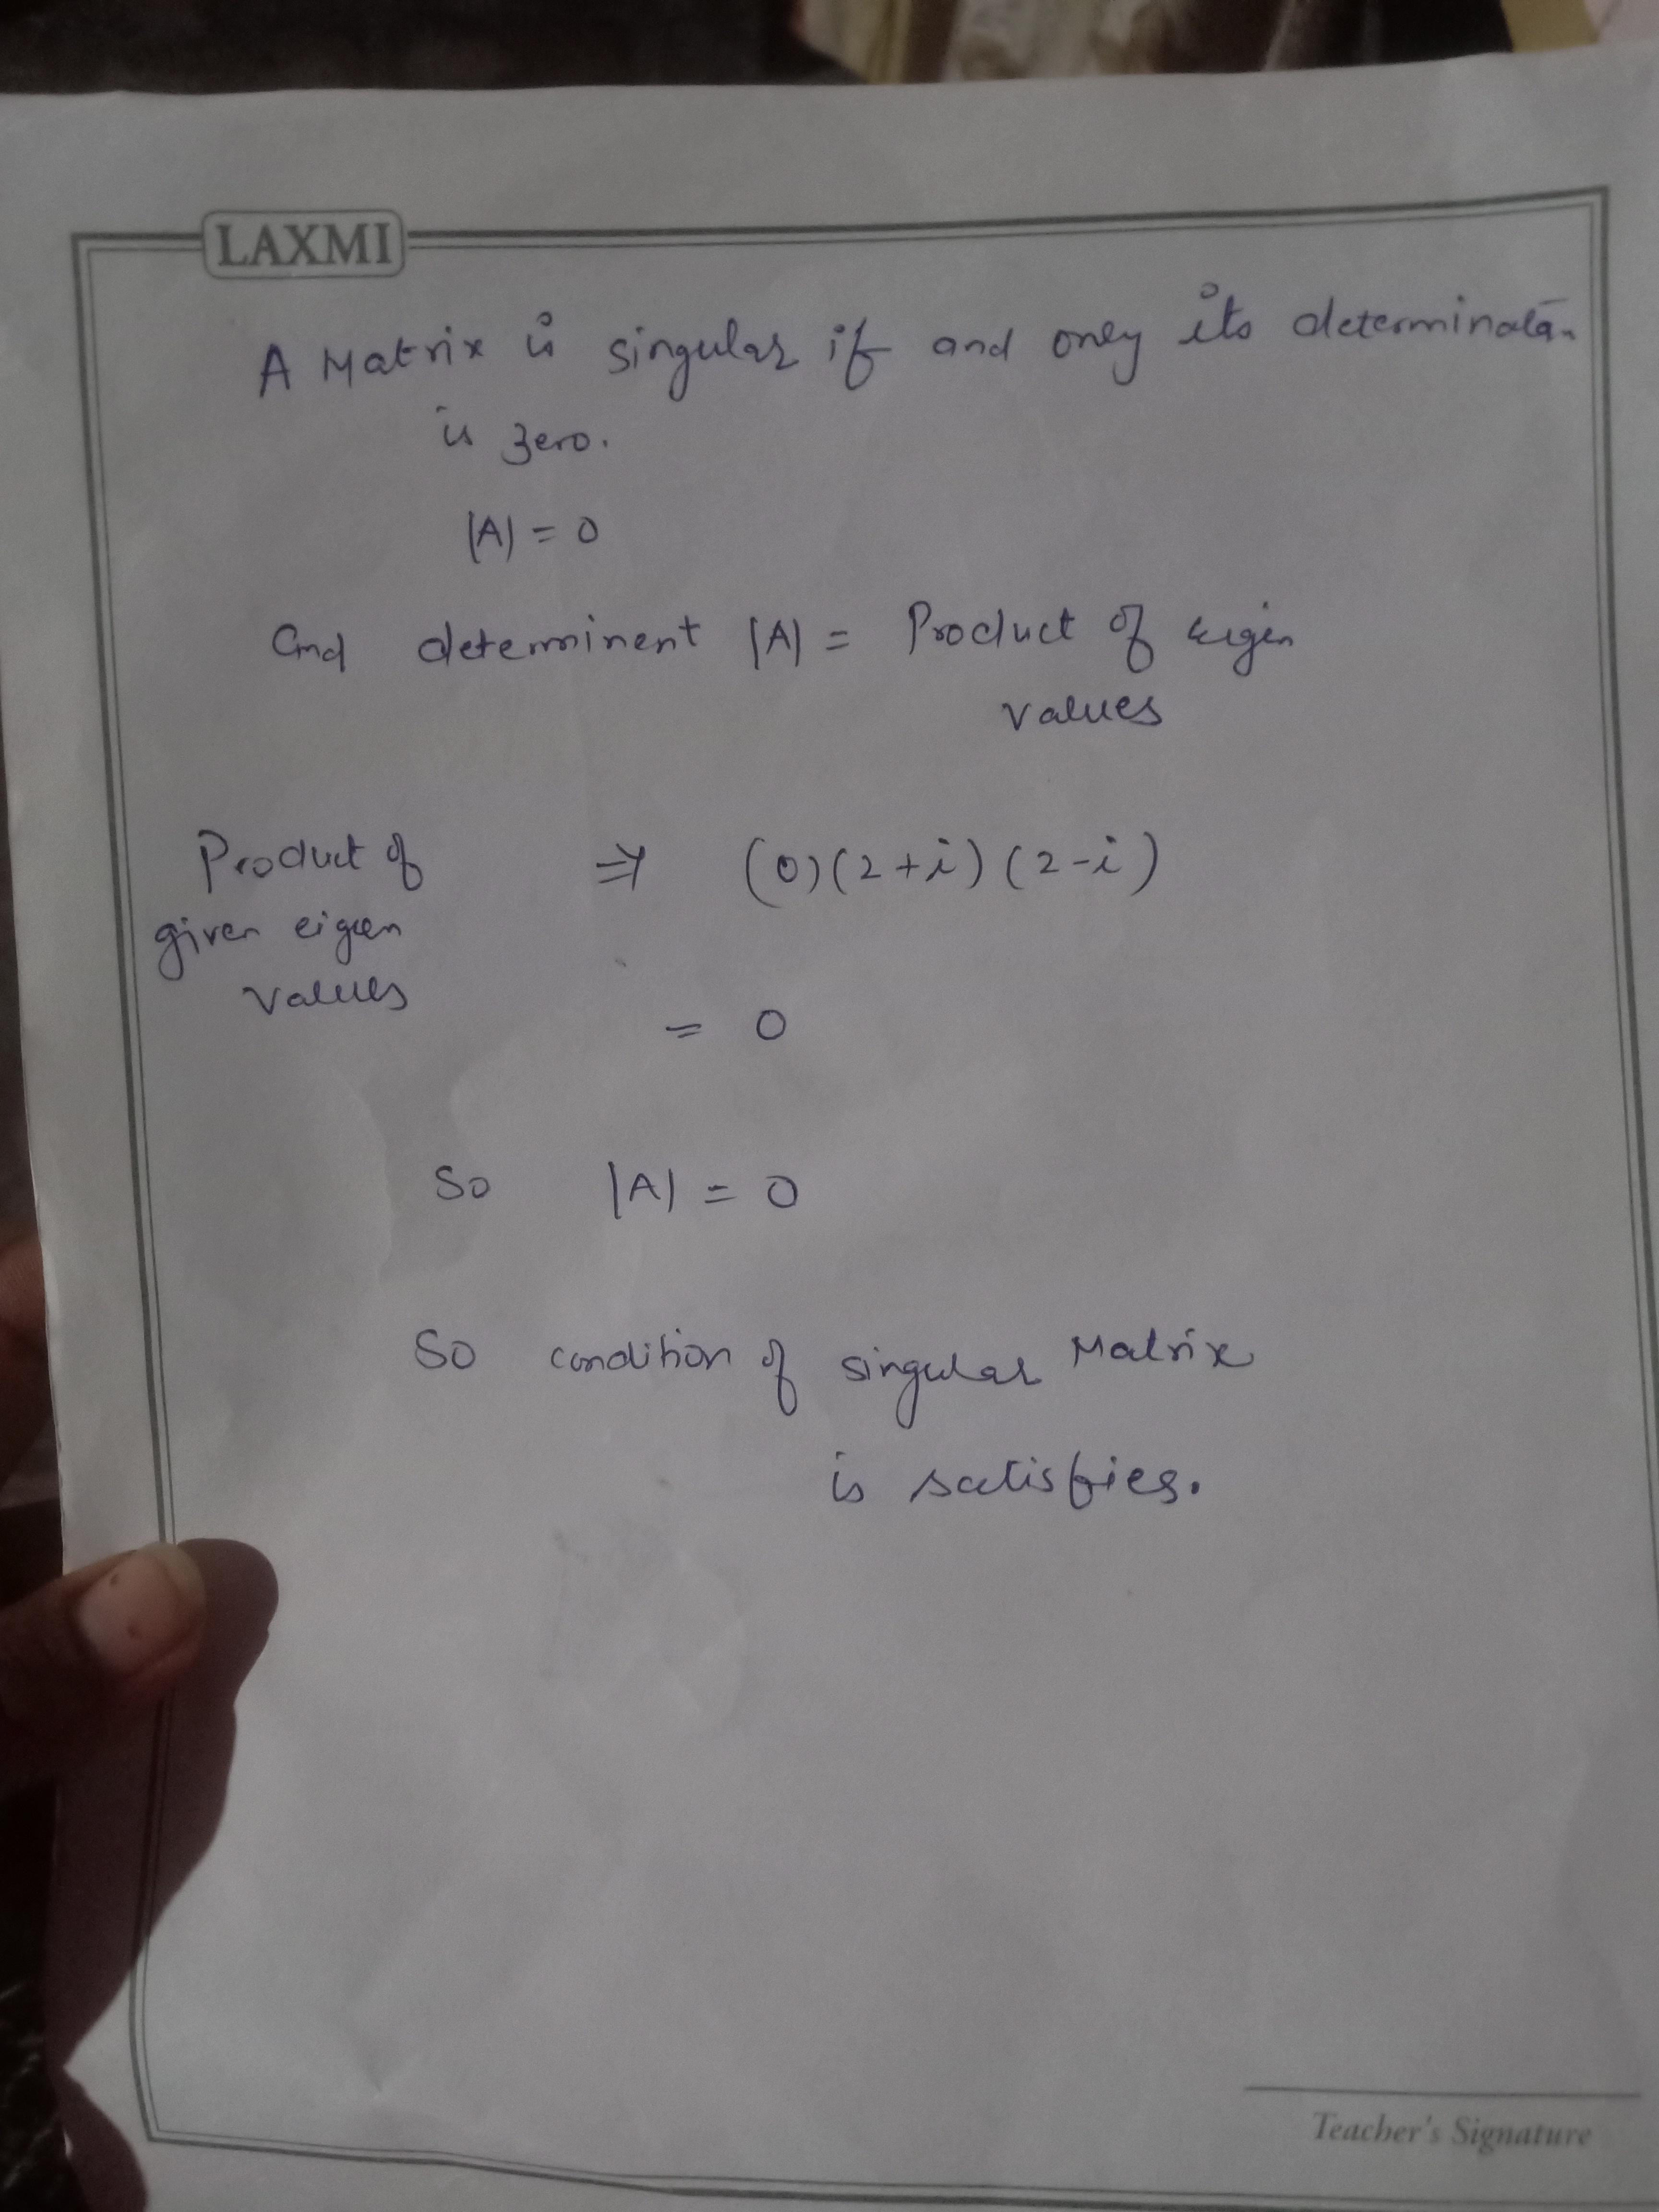 LAXMI
A Matrix is singular if and only its
is zero.
|A| = 0
and determinent |A| = Product of eigen
values
Product of ⇒ (0)(2+i)(2-i)
given eigen
values
= 0
So |A| = 0
So condition of singular Matrix
is satisfies.
Teacher's Signature